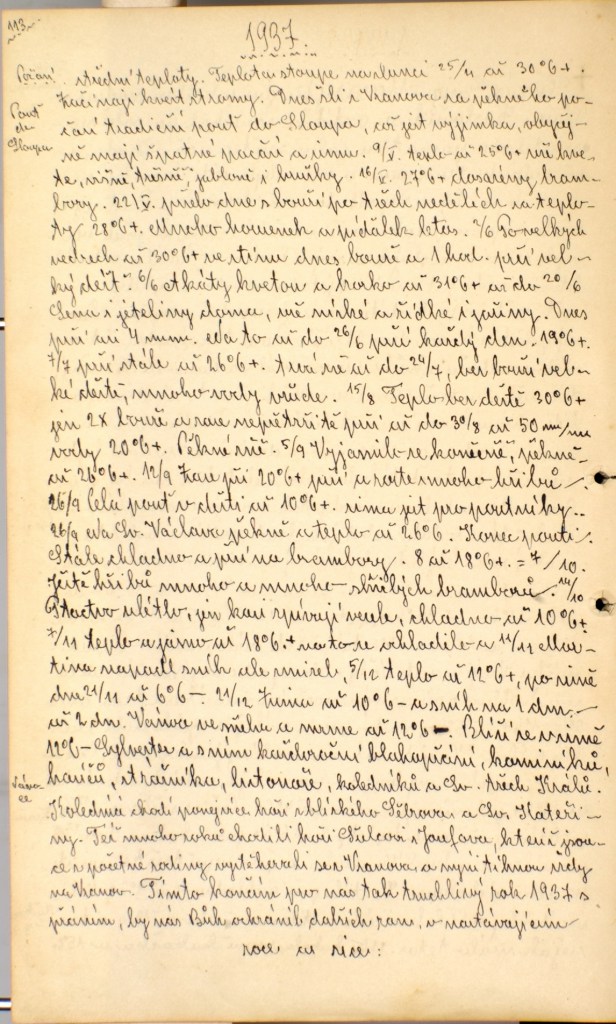 113
1937.
Počasí střední teploty. Teplota stoupe na slunci 25/4 až 30°C+.
Pouť do Sloupa
Začínají kvést stromy. Dnes šli z Vranova za pěkného po-
časí tradiční pouť do Sloupa, což jest výjimka, obyčej-
ně mají špatné počasí a zimu. 9/V. teplo až 25°C+ vše kve-
te, višně, třešně, jabloně i hrušky. 16/V. 27°C+ dosazeny bram-
bory. 22/V. přišlo dnes s bouří po třech nedělích za teplo-
ty 28°C+. Mnoho housenek a píďalek letos. 2/6 Po velkých
vedrech až 30°C+ ve stínu dnes bouře a 1 hod. prší vel-
ký déšť. 6/6 Akáty kvetou a horko až 31°C+ až do 20/6
Sena i jeteliny doma, vše nízké a řídké i jařiny. Dnes
prší asi 4 mm. Na to až do 26/6 prší každý den. 19°C+.
7/7 prší stále až 26°C+. trvá až do 24/7, bez bouří vel-
ké deště, mnoho vody všude. 15/8 Teplo bez deště 30°C+
jen 2x bouře a zase nepřetržitě prší až do 30/8 až 50 mm/mm
vody 20°C+. Pěkné 5/9 Vyjasnilo se konečně, pěkně
až 26°C+. 12/9 Zase prší 20°C+ prší a roste mnoho hřibů.
26/9 Celá pouť v dešti až 10°C+. zima jest pro poutníky..
28/9 Na Sv. Václava pěkně a teplo až 26°C. Konec pouti.
Stále chladno a prší na brambory. 8 až 18°C+. = 7/10.
Ještě hřibů mnoho a mnoho shnilých bramborů. 14/10
Ptactvo ulétlo, jen kosi zpívají vesele, chladno až 10°C+
7/11 teplo a jasno až 18°C.+ na to se ochladilo a 11/11 Mar-
tina napadl sníh ale zmizel, 5/12 teplo až 12°C+, po zimě
dne 21/11 až 6°C-. 21/12 Zima až 10°C- a sníh na 1 dm.
až 2 dm. Vánoce ve sněhu a mrazu až 12°C-. Blíží se v zimě
Vánoce
12°C- Sylvestr a s ním každoroční blahopřání, kominíků,
hasičů, strážníka, listonoše, koledníků a Sv. třech Králů.
Koledníci chodí ponejvíce hoši z blízkého Šebrova a Sv. Kateři-
ny. Též mnoho roků chodili hoši Šulcovi z Josefova, kteří jsou-
ce z početné rodiny vystěhovali se z Vranova a nyní tíhnou vždy
na Vranov. Tímto končím pro nás tak truchlivý rok 1937 s
přáním, by nás Bůh ochránil dalších ran, v nastávajícím
roce a sice: